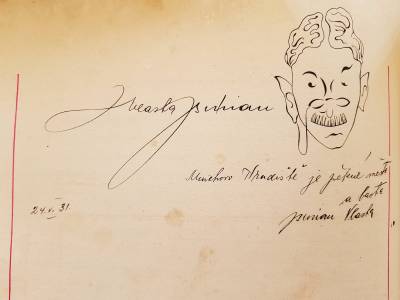 Vlasta Burian
Mnichovo Hradiště je pěkné město
a basta
Burian Vlasta
24.V.31.